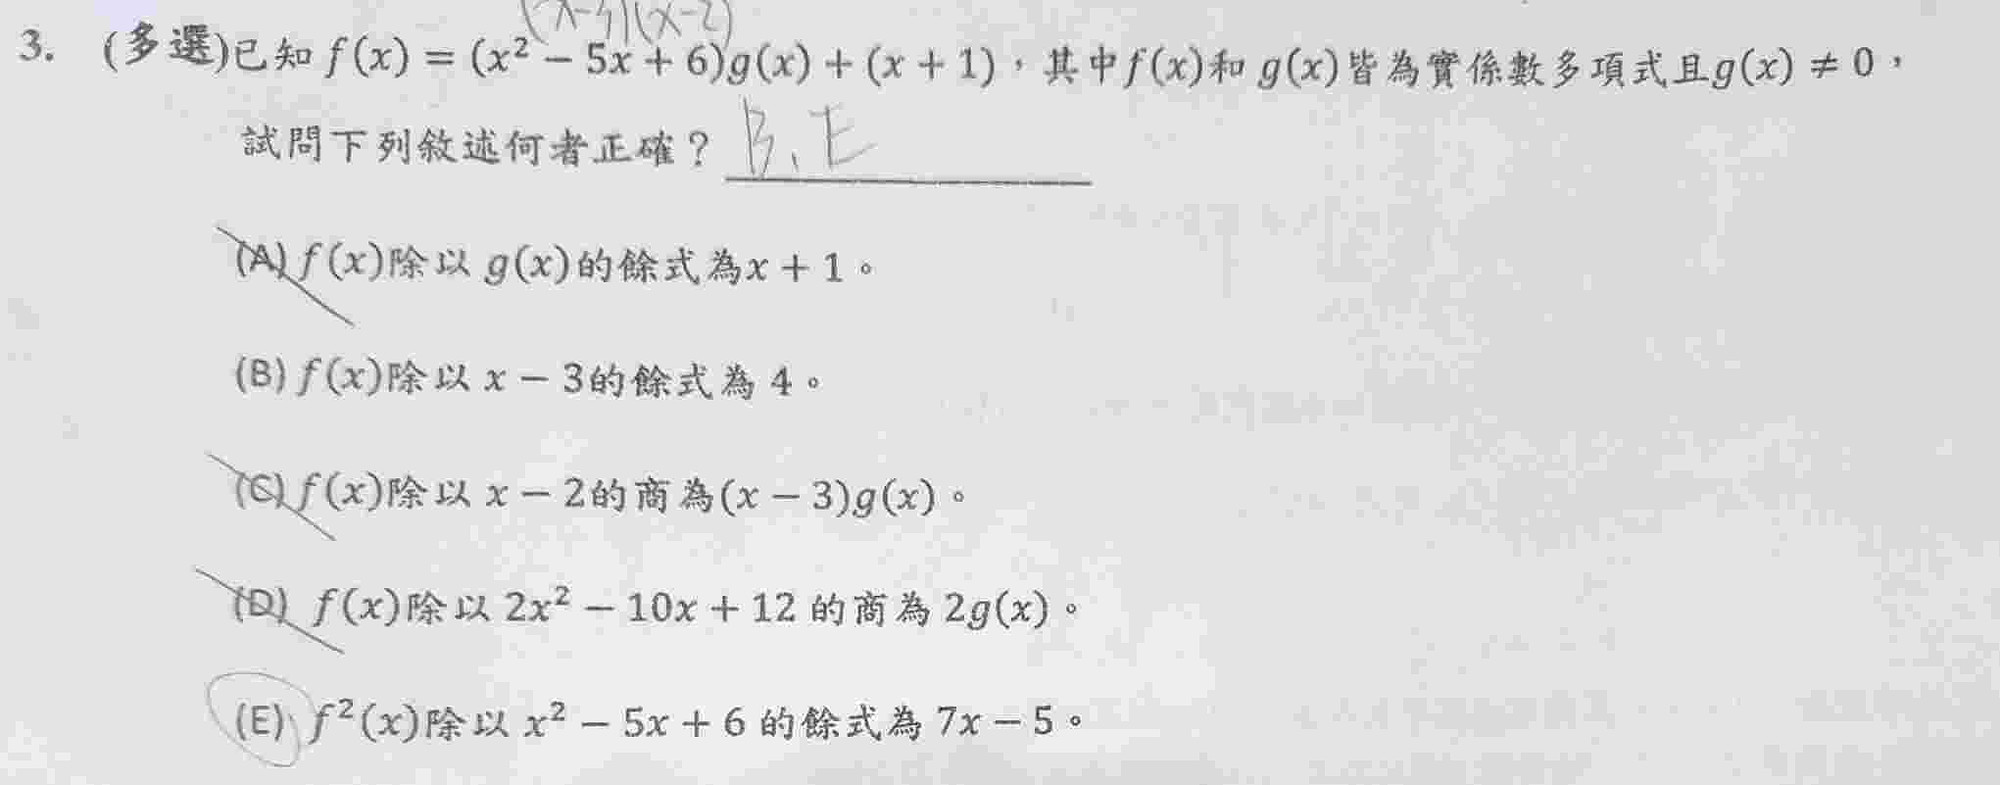 (x-3)(x-2)
3. (多選)已知 f(x) = (x² − 5x + 6)g(x) + (x + 1)，其中f(x)和 g(x)皆為實係數多項式且g(x) ≠ 0，
試問下列敘述何者正確？ B、E
(A) f(x)除以 g(x)的餘式為x + 1。
(B) f(x)除以 x − 3的餘式為 4。
(C) f(x)除以 x − 2的商為(x − 3)g(x)。
(D) f(x)除以 2x² − 10x + 12 的商為 2g(x)。
(E) f²(x)除以 x² − 5x + 6 的餘式為 7x − 5。